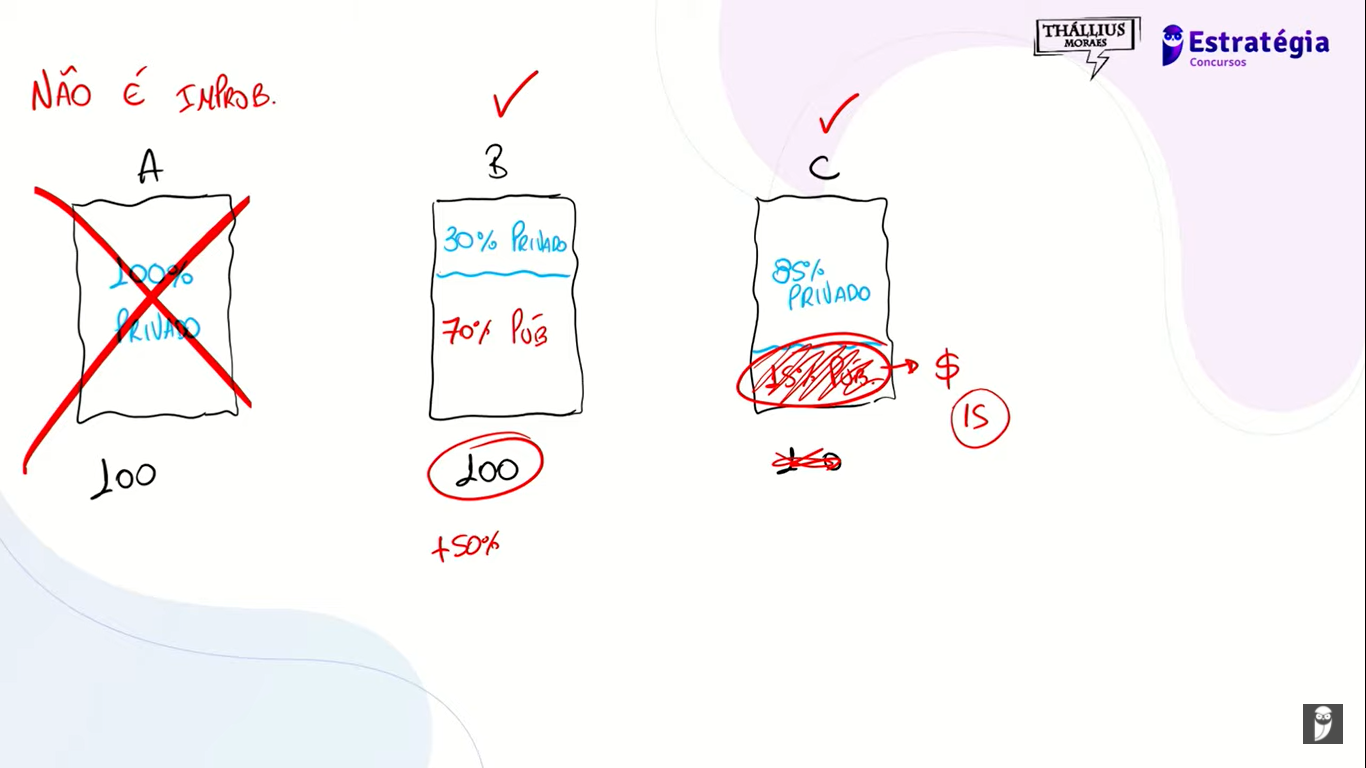 THÁLLIUS
MORAES
Estratégia
Concursos
NÃO É IMPROB.
A
100%
PRIVADO
100
B
30% PRIVADO
70% PÚB
100
+50%
C
85%
PRIVADO
15% PÚB.
$
15
100